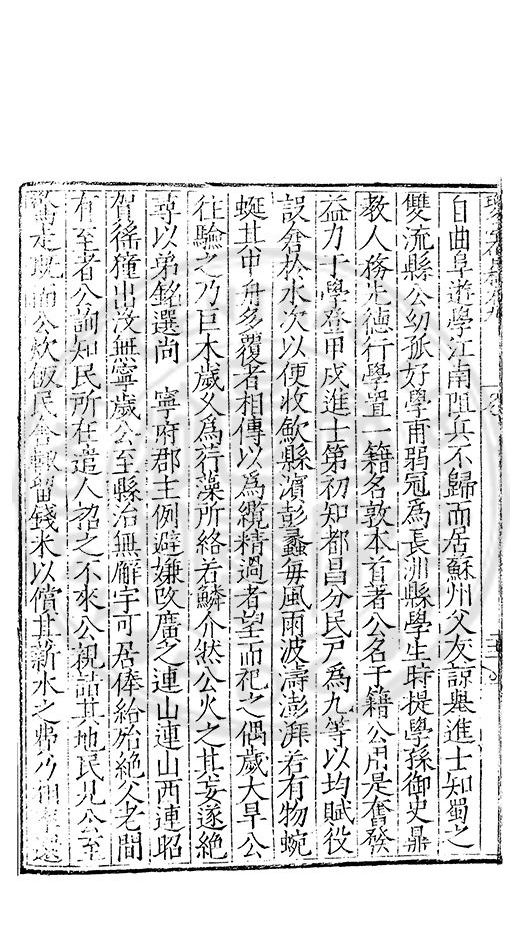 自曲阜遊學江南阻兵不歸而居蘇州父友諒舉進士知蜀之
雙流縣公幼孤好學甫弱冠為長洲縣學生時提學孫御史鼎
教人務先德行學置一籍名敦本首著公名于籍公用是奮發
益力于學登甲戌進士第初知都昌分民戶為九等以均賦役
設倉於水次以便收歛縣濵彭蠡每風雨波濤澎湃若有物蜿
蜒其中舟多覆者相傳以為纜精過者望而祀之偶歲大旱公
往驗之乃巨木歲久為荇藻所絡若鱗介然公火之其妄遂絕
尋以弟銘選尚 寧府郡主例避嫌改廣之連山連山西連昭
賀徭獞出沒無寧歲公至縣治無廨宇可居俸給殆絕父老間
有至者公詢知民所在遣人招之不來公親詣其地民見公至
走既而公炊飯民舍輙留錢米以償其薪水之費